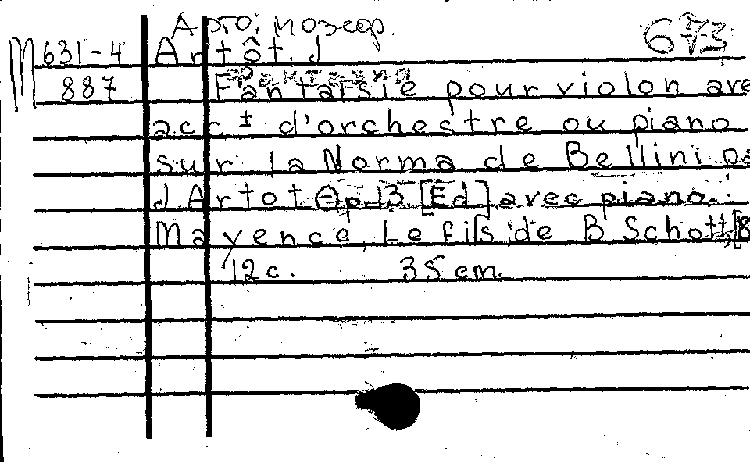 Арто, Жозеф. 673
М 631-4 Artôt, J
887 Fantaisie pour violon ave
acc t d'orchestre ou piano
sur la Norma de Bellini pa
J. Artot Op. 13 [Ed] avec piano.:
Mayence, Le fils de B Schott, [8
12 c. 35 cm.